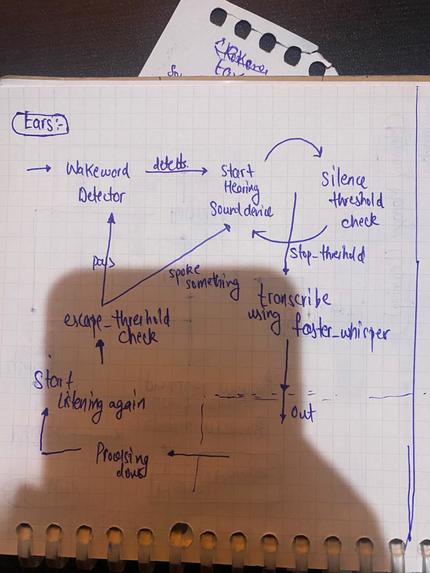 Ears:-
Wakeword
Detector
detects
Start
Hearing
Sounddevice
Silence
threshold
check
Stop_threshold
pass
spoke
something
transcribe
using faster_whisper
escape_threshold
check
Start
listening again
out
Processing
done